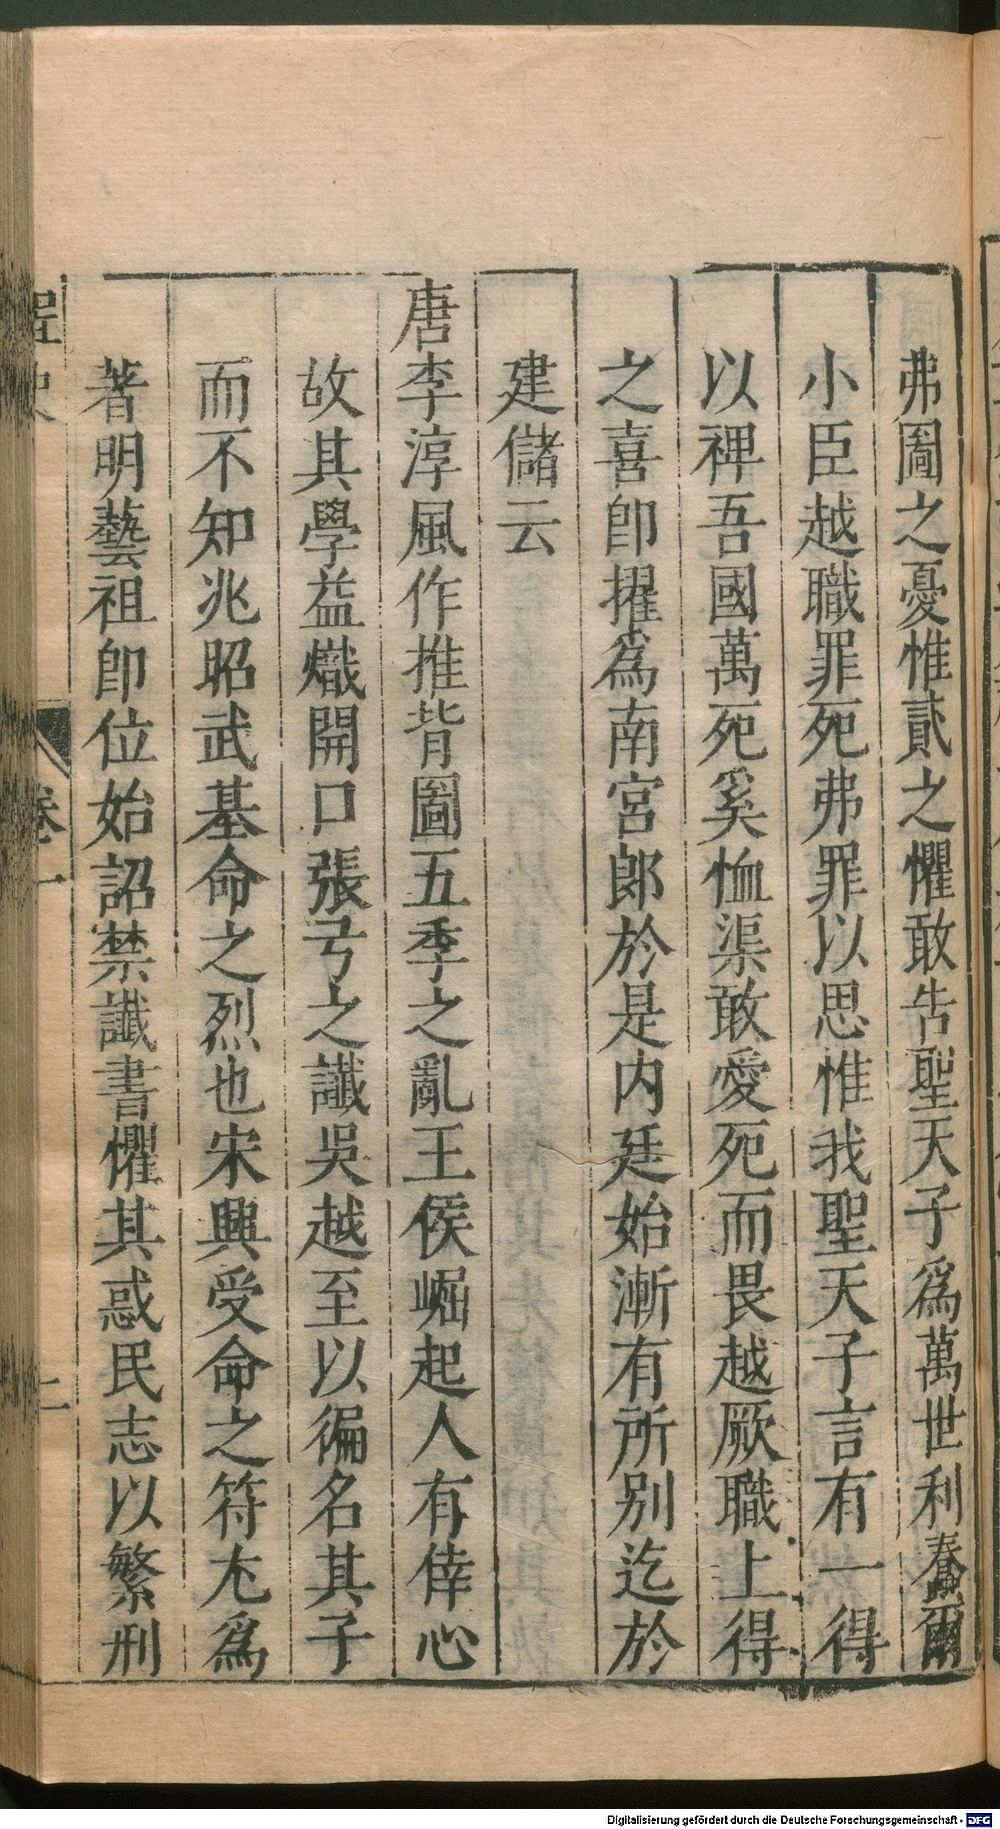 弗圖之憂惟貳之懼敢告聖天子爲萬世利蠢爾
小臣越職罪死弗罪以思惟我聖天子言有一得
以裨吾國萬死奚恤渠敢愛死而畏越厥職上得
之喜卽擢爲南宮郞於是内廷始漸有所别迄於
建儲云
唐李淳風作推背圖五季之亂王侯崛起人有倖心
故其學益熾開口張弓之讖吳越至以徧名其子
而不知兆昭武基命之烈也宋興受命之符尤爲
著明藝祖卽位始詔禁讖書懼其惑民志以繁刑
桯史 卷一 二
Digitalisierung gefördert durch die Deutsche Forschungsgemeinschaft - DFG